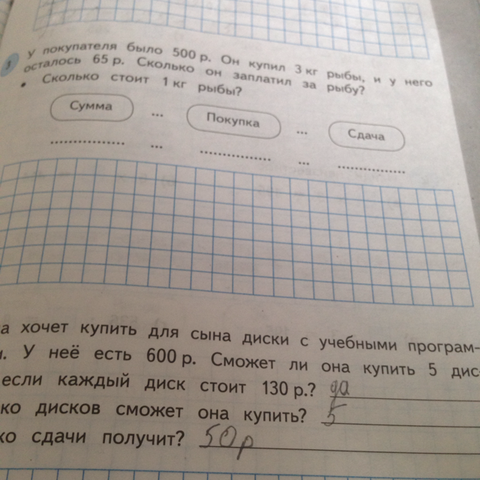 1 У покупателя было 500 р. Он купил 3 кг рыбы, и у него
осталось 65 р. Сколько он заплатил за рыбу?
• Сколько стоит 1 кг рыбы?
Сумма ... Покупка ... Сдача
................ ... ................ ... ................
а хочет купить для сына диски с учебными програм-
и. У неё есть 600 р. Сможет ли она купить 5 дис-
если каждый диск стоит 130 р.? да
ко дисков сможет она купить? 5
ко сдачи получит? 50 р